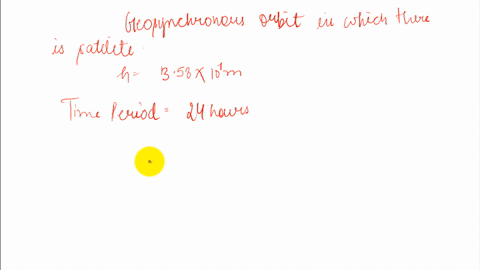 Geosynchronous orbit in which there
is satelite
h = 3.58 × 10⁷m
Time Period = 24 hours